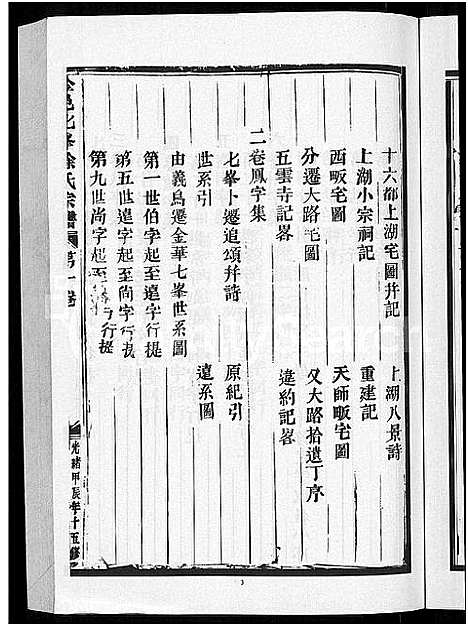 十六都上湖宅圖并記 上湖八景詩
上湖小宗祠記 重建記
西畈宅圖 天師畈宅圖
分遷大路宅圖 又大路拾遺丁序
五雲寺記畧 違約記畧
二卷鳳字集
七峯卜遷追頌并詩 原紀引
世系引 遠系圖
由義烏遷金華七峯世系圖
第一世伯字起至遠字行提
第五世遠字起至尚字行提
第九世尚字起至 字行提
邑七峯徐氏宗譜 第一卷
光緒甲辰年十五修